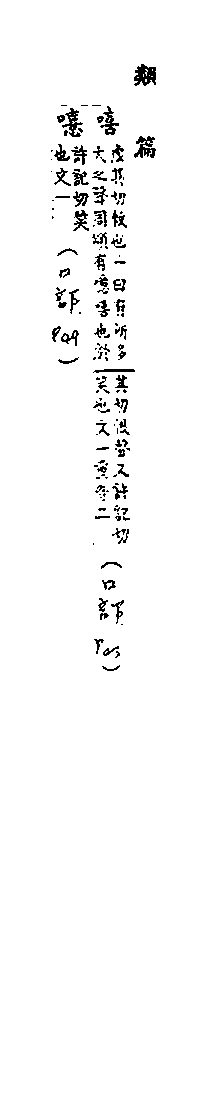 類篇
嘻
虛其切敕也一曰有所多
大之聲周頌有噫嘻也於
其切恨聲又許記切
笑也文一重音二
(口部
許記切笑
也文一
(口部 P49)